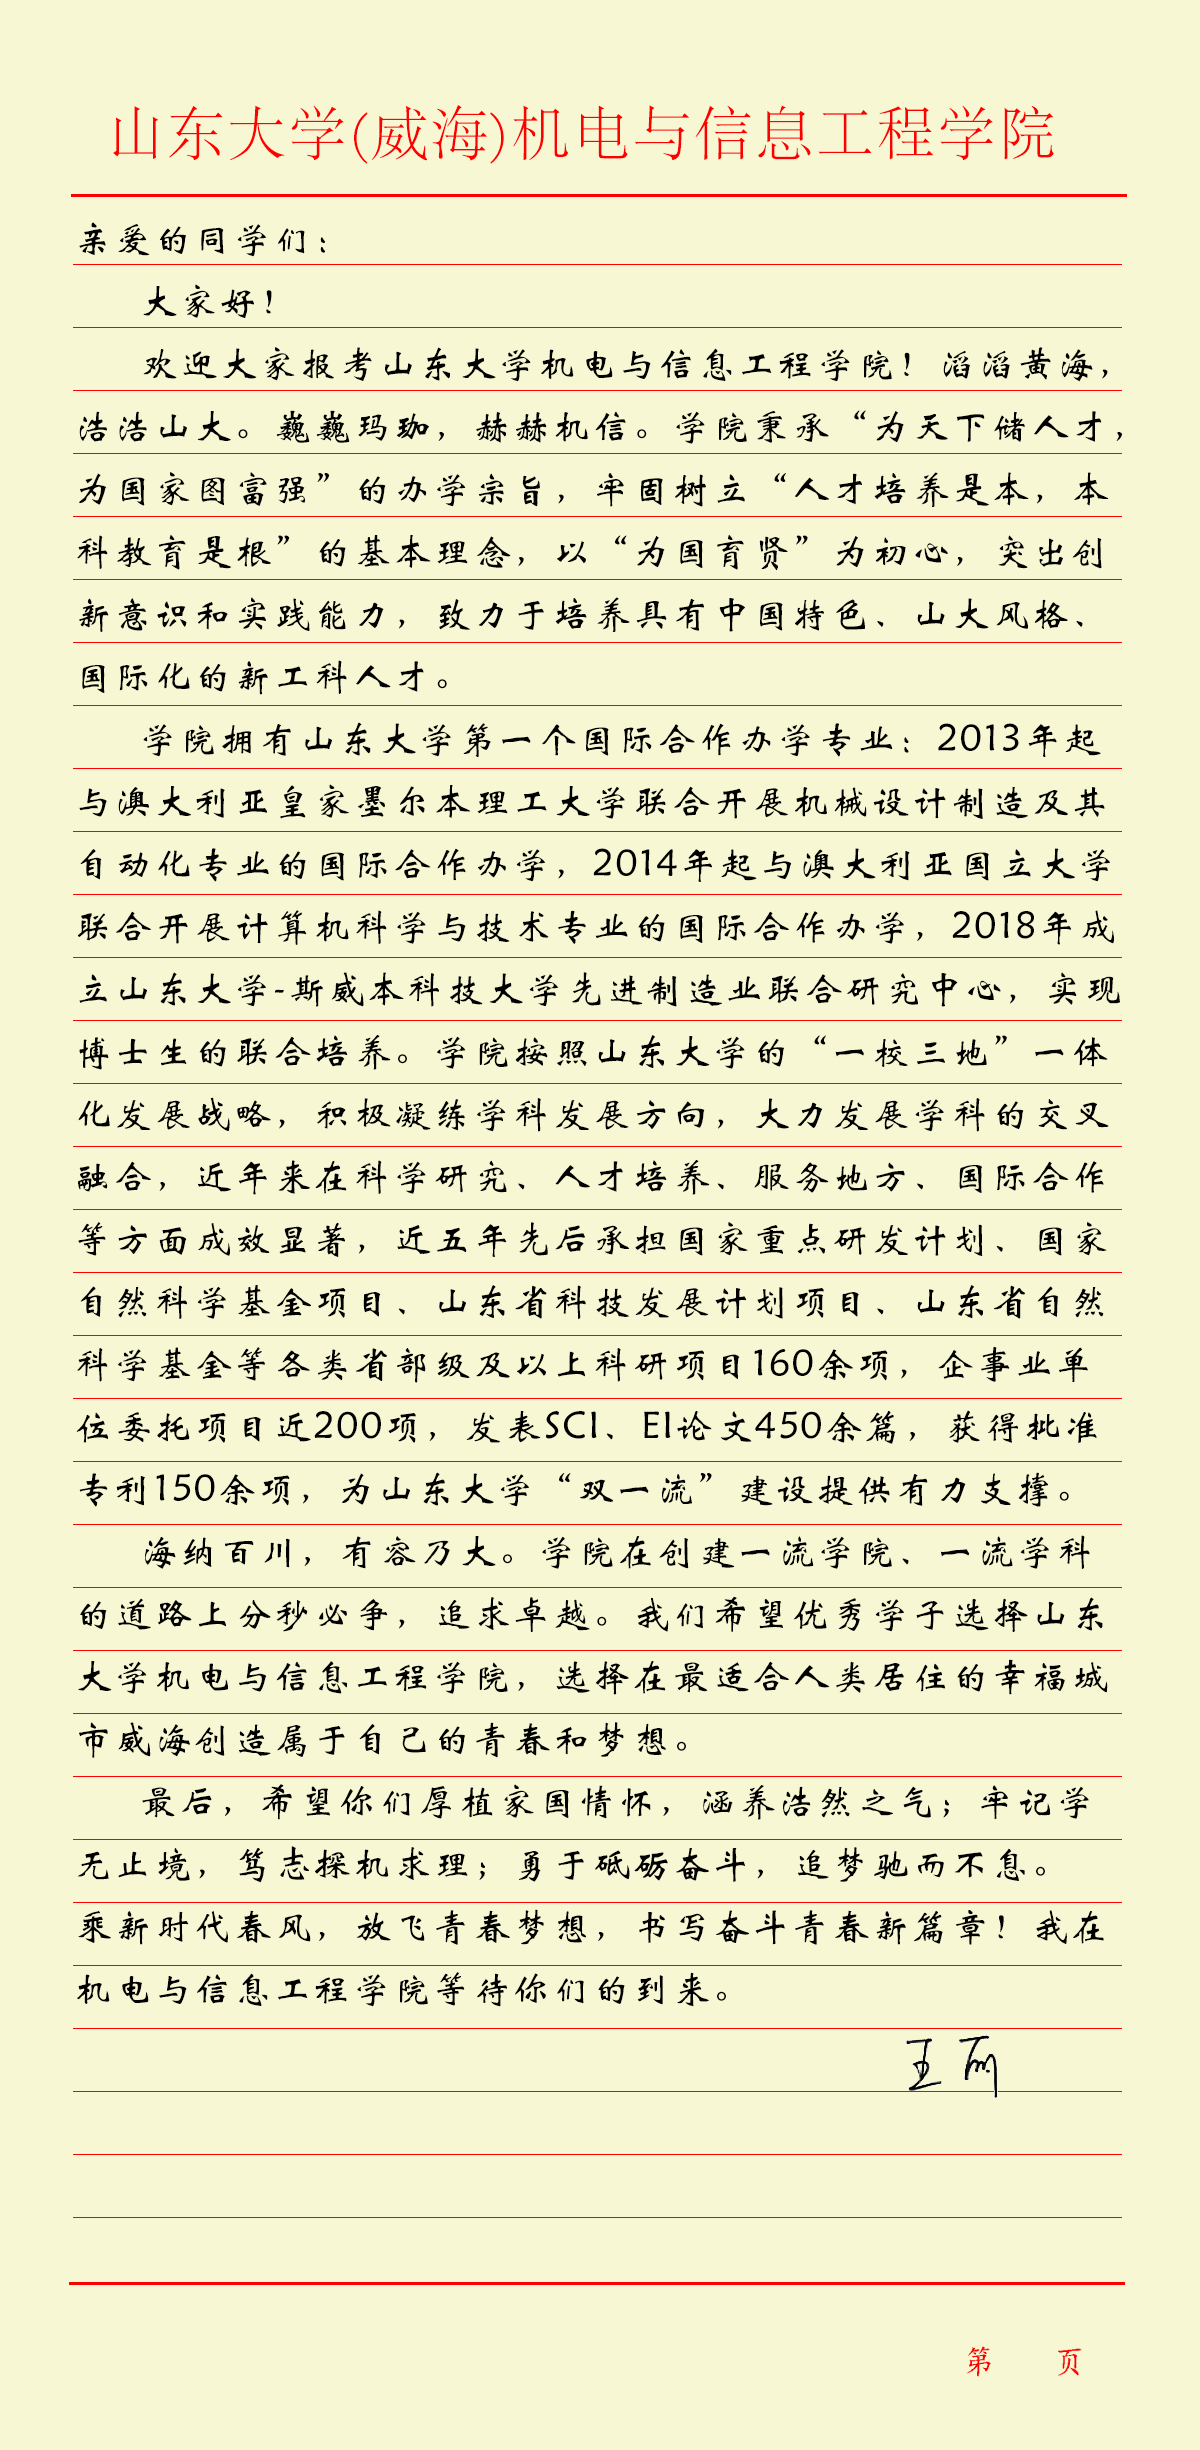 山东大学(威海)机电与信息工程学院
亲爱的同学们：
大家好！
欢迎大家报考山东大学机电与信息工程学院！滔滔黄海，
浩浩山大。巍巍玛珈，赫赫机信。学院秉承“为天下储人才，
为国家图富强”的办学宗旨，牢固树立“人才培养是本，本
科教育是根”的基本理念，以“为国育贤”为初心，突出创
新意识和实践能力，致力于培养具有中国特色、山大风格、
国际化的新工科人才。
学院拥有山东大学第一个国际合作办学专业：2013年起
与澳大利亚皇家墨尔本理工大学联合开展机械设计制造及其
自动化专业的国际合作办学，2014年起与澳大利亚国立大学
联合开展计算机科学与技术专业的国际合作办学，2018年成
立山东大学-斯威本科技大学先进制造业联合研究中心，实现
博士生的联合培养。学院按照山东大学的“一校三地”一体
化发展战略，积极凝练学科发展方向，大力发展学科的交叉
融合，近年来在科学研究、人才培养、服务地方、国际合作
等方面成效显著，近五年先后承担国家重点研发计划、国家
自然科学基金项目、山东省科技发展计划项目、山东省自然
科学基金等各类省部级及以上科研项目160余项，企事业单
位委托项目近200项，发表SCI、EI论文450余篇，获得批准
专利150余项，为山东大学“双一流”建设提供有力支撑。
海纳百川，有容乃大。学院在创建一流学院、一流学科
的道路上分秒必争，追求卓越。我们希望优秀学子选择山东
大学机电与信息工程学院，选择在最适合人类居住的幸福城
市威海创造属于自己的青春和梦想。
最后，希望你们厚植家国情怀，涵养浩然之气；牢记学
无止境，笃志探机求理；勇于砥砺奋斗，追梦驰而不息。
乘新时代春风，放飞青春梦想，书写奋斗青春新篇章！我在
机电与信息工程学院等待你们的到来。
王丽
第 页